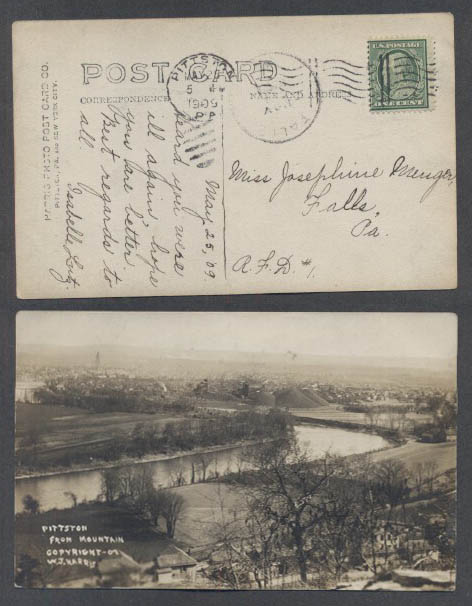 POST CARD
CORRESPONDENCE
NAME AND ADDRESS
PHOTO POST CARD CO.
PITTSTON
MAY
5
1909
PA.
U.S. POSTAGE
ONE CENT
May 25, '09.
Heard you were
ill again, hope
you are better
Best regards to
all.
Isabelle
Miss Josephine Menger,
Falls,
Pa.
R.F.D. #1.
PITTSTON
FROM MOUNTAIN
COPYRIGHT-07
W.J. HARRIS